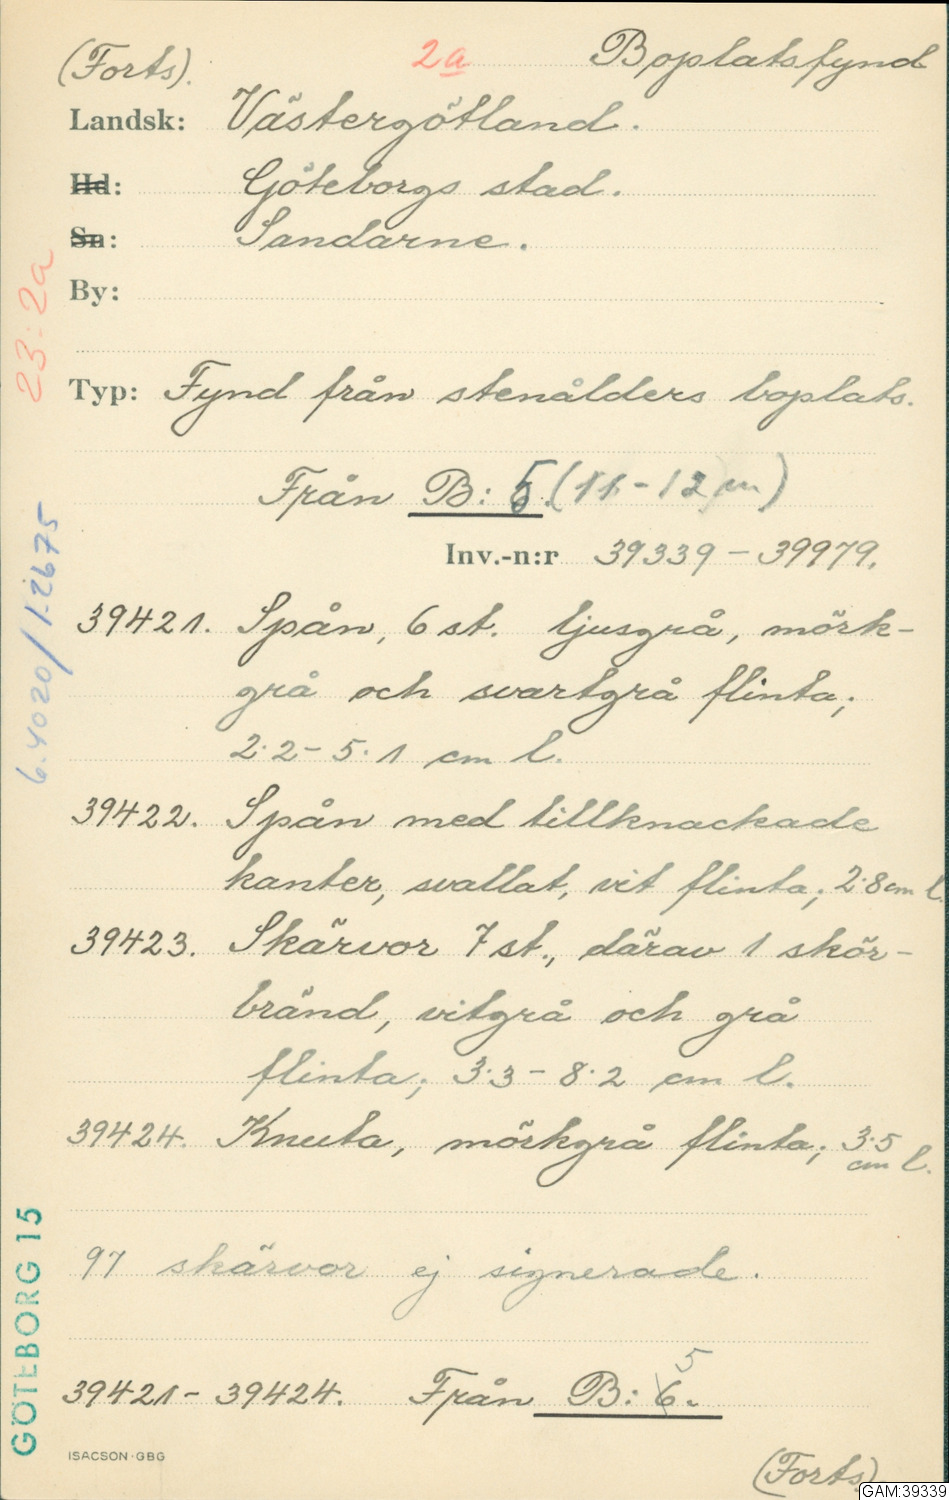 (Forts). 2a Boplatsfynd
Landsk: Västergötland.
Hd: Göteborgs stad.
Sn: Sandarne.
By:
Typ: Fynd från stenålders boplats.
Från B: 5. (11-12 m)
Inv.-n:r 39339 - 39979.
39421. Spån, 6 st. ljusgrå, mörk-
grå och svartgrå flinta;
2.2 - 5.1 cm l.
39422. Spån med tillknackade
kanter, svallat, vit flinta; 2.8 cm l.
39423. Skärvor 7 st., därav 1 skör-
bränd, vitgrå och grå
flinta; 3.3 - 8.2 cm l.
39424. Knuta, mörkgrå flinta; 3.5
cm l.
97 skärvor ej signerade.
5
39421 - 39424. Från B: 6.
ISACSON-GBG
(Forts).
23:2a
6.4020/1-2675
GÖTEBORG 15
GAM:39339